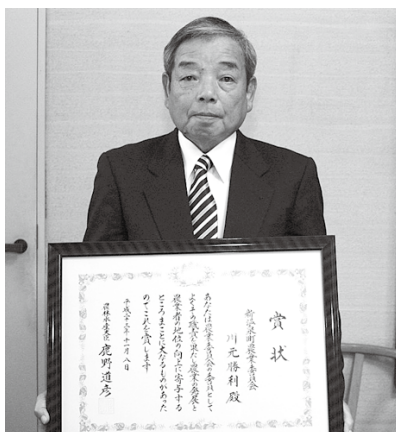 賞状
新温泉町農業委員会
川元勝利殿
あなたは農業委員会の委員として
よくその職責を果たし農業の発展と
農業者の地位の向上に寄与する
ところまことに大なるものがあった
のでこれを賞します
平成二十三年十一月八日
農林水産大臣 鹿野道彦